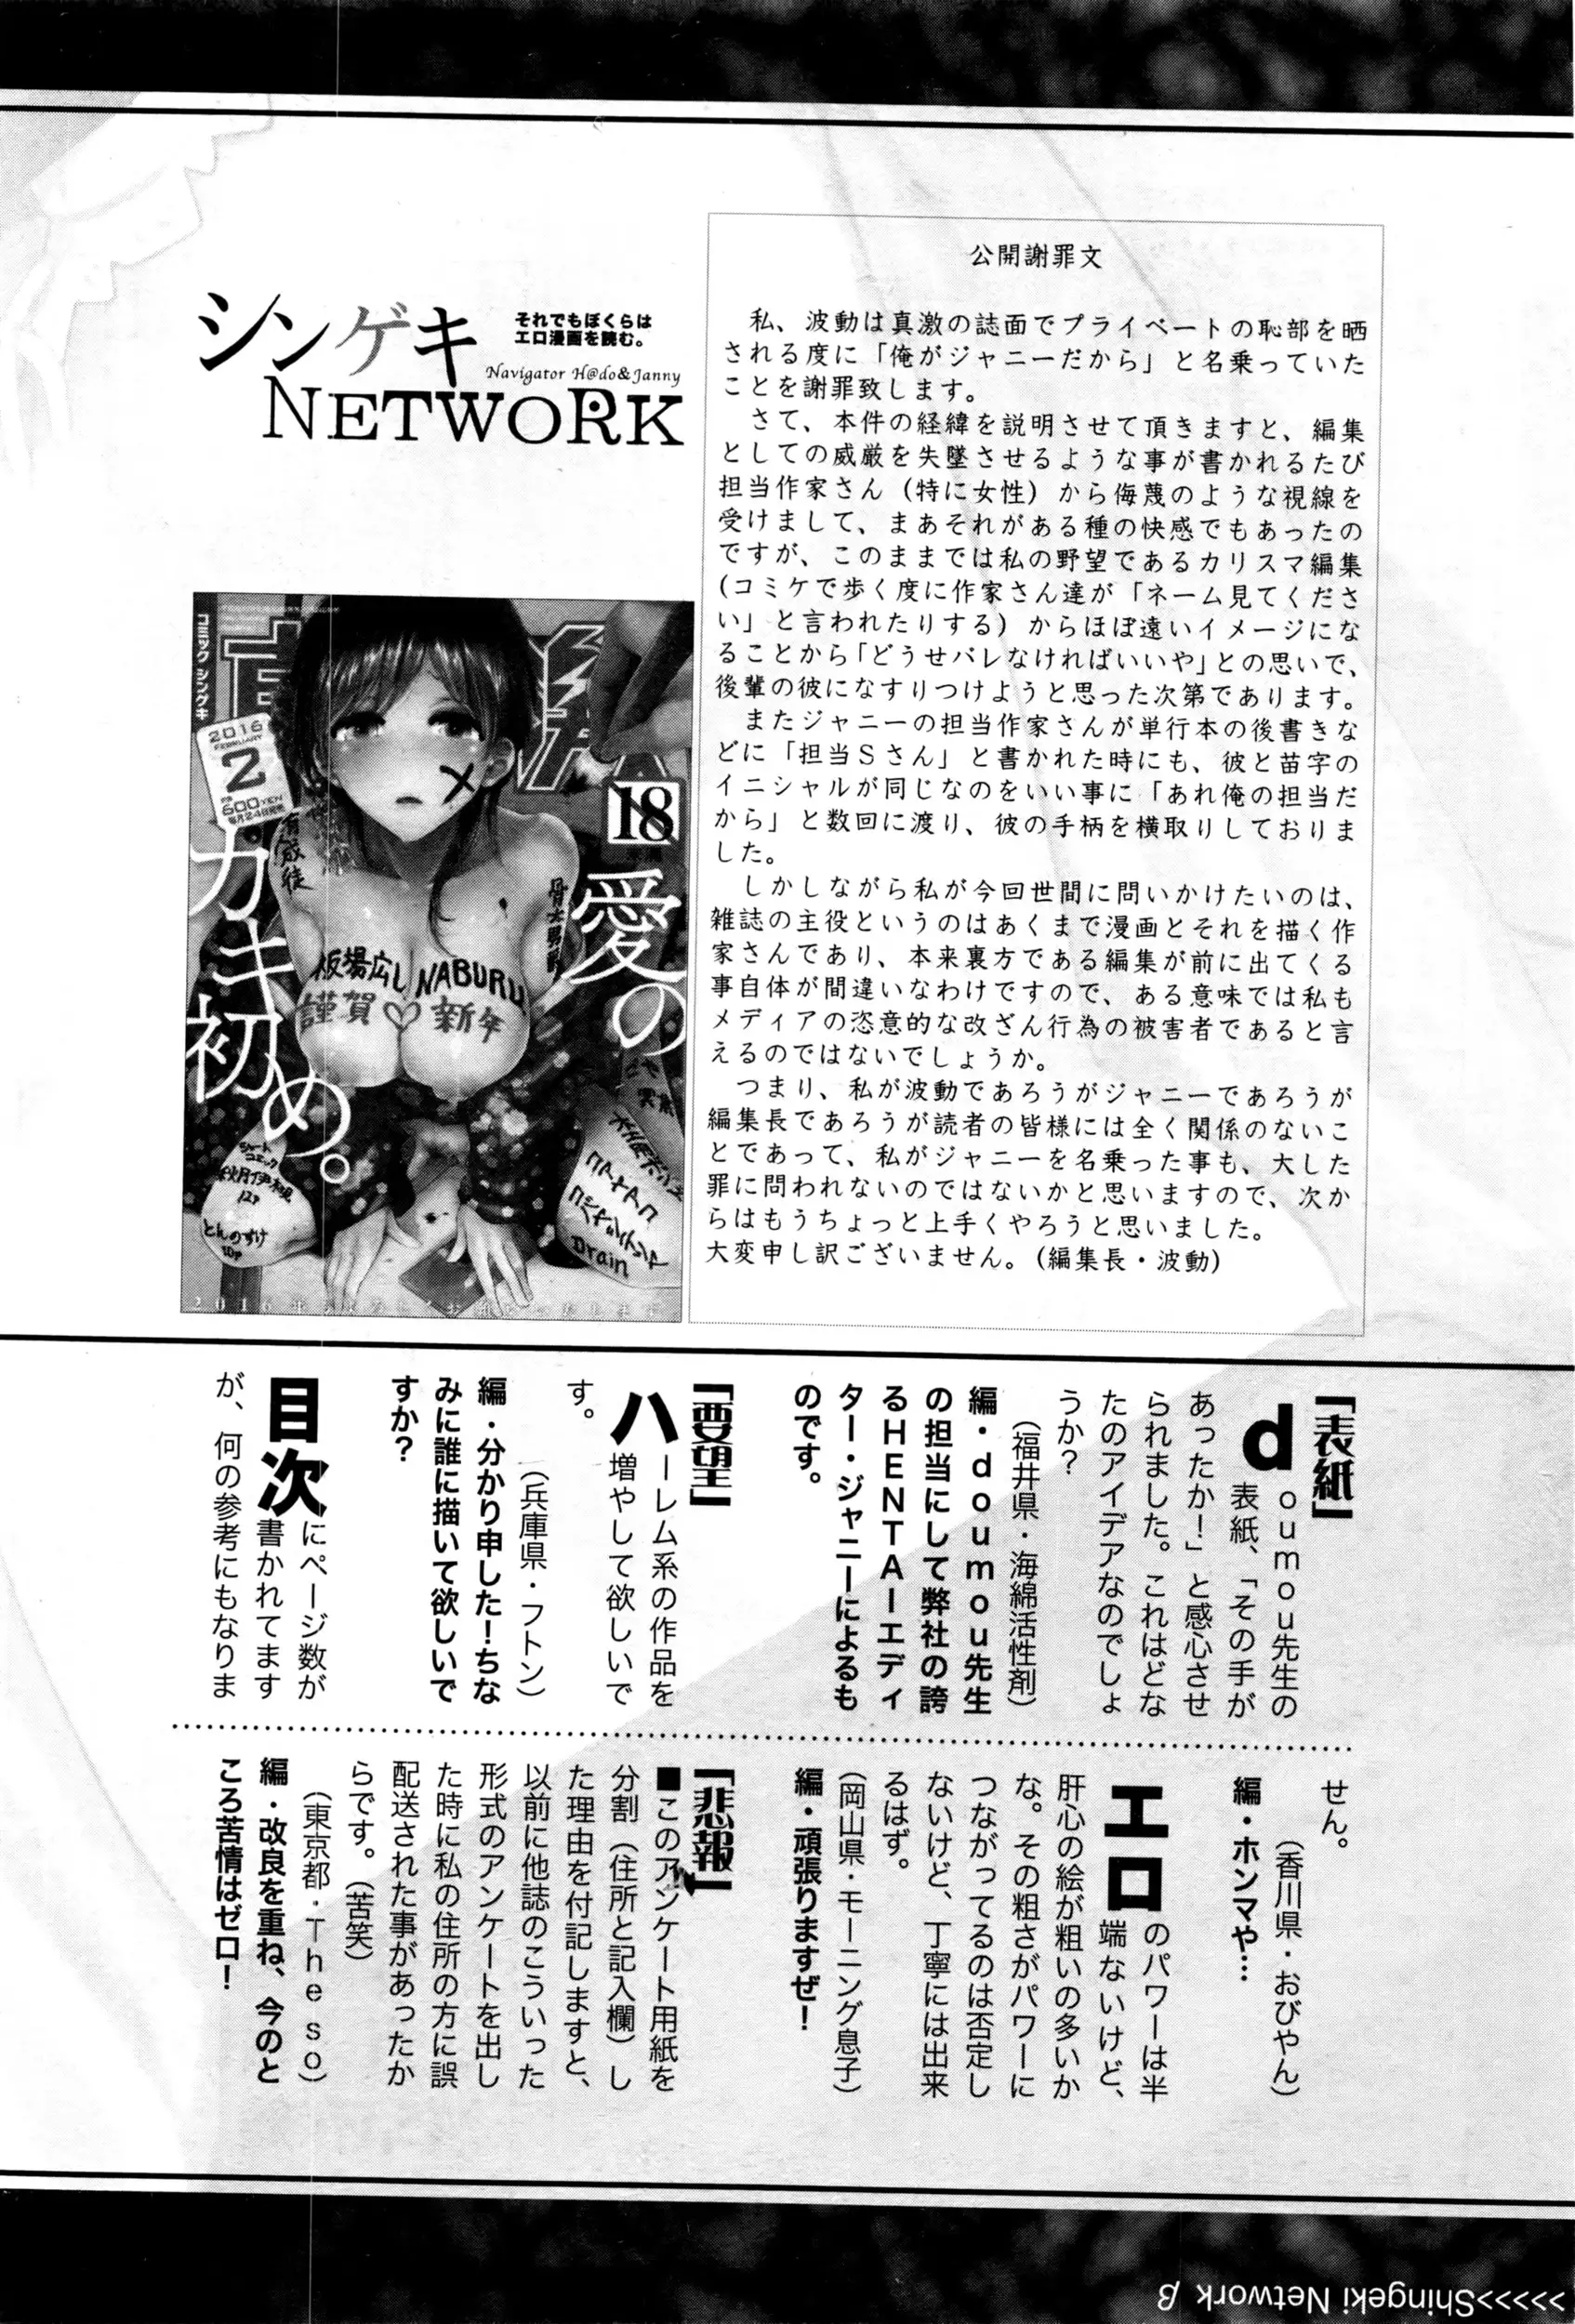 シンゲキ
それでもぼくらは
エロ漫画を読む。
Navigator H@do&Janny
NETWORK
公開謝罪文
私、波動は真激の誌面でプライベートの恥部を晒
される度に「俺がジャニーだから」と名乗っていた
ことを謝罪致します。
さて、本件の経緯を説明させて頂きますと、編集
としての威厳を失墜させるような事が書かれるたび
担当作家さん(特に女性)から侮蔑のような視線を
受けまして、まあそれがある種の快感でもあったの
ですが、このままでは私の野望であるカリスマ編集
(コミケで歩く度に作家さん達が「ネーム見てくださ
い」と言われたりする)からほぼ遠いイメージにな
ることから「どうせバレなければいいや」との思いで、
後輩の彼になすりつけようと思った次第であります。
またジャニーの担当作家さんが単行本の後書きな
どに「担当Sさん」と書かれた時にも、彼と苗字の
イニシャルが同じなのをいい事に「あれ俺の担当だ
から」と数回に渡り、彼の手柄を横取りしておりま
した。
しかしながら私が今回世間に問いかけたいのは、
雑誌の主役というのはあくまで漫画とそれを描く作
家さんであり、本来裏方である編集が前に出てくる
事自体が間違いなわけですので、ある意味では私も
メディアの恣意的な改ざん行為の被害者であると言
えるのではないでしょうか。
つまり、私が波動であろうがジャニーであろうが
編集長であろうが読者の皆様には全く関係のないこ
とであって、私がジャニーを名乗った事も、大した
罪に問われないのではないかと思いますので、次か
らはもうちょっと上手くやろうと思いました。
大変申し訳ございません。(編集長・波動)
コミック シンゲキ
2016
FEBRUARY
2
600YEN
18
愛の
カキ初め。
板場広し
NABURU
謹賀♡新年
とんのすけ
Drain
「表紙」
doumou先生の
表紙、「その手が
あったか!」と感心させ
られました。これはどな
たのアイデアなのでしょ
うか?
(福井県・海綿活性剤)
編・doumou先生
の担当にして弊社の誇
るHENTAIーエディ
ター・ジャニーによるも
のです。
「要望」
ハーレム系の作品を
増やして欲しいで
す。
(兵庫県・フトン)
編・分かり申した!ちな
みに誰に描いて欲しいで
すか?
目次にページ数が
書かれてます
が、何の参考にもなりま
せん。
(香川県・おびやん)
編・ホンマや…
エロのパワーは半
端ないけど、
肝心の絵が粗いの多いか
な。その粗さがパワーに
つながってるのは否定し
ないけど、丁寧には出来
るはず。
(岡山県・モーニング息子)
編・頑張りますぜ!
「悲報」
■このアンケート用紙を
分割(住所と記入欄)し
た理由を付記しますと、
以前に他誌のこういった
形式のアンケートを出し
た時に私の住所の方に誤
配送された事があったか
らです。(苦笑)
(東京都・Theso)
編・改良を重ね、今のと
ころ苦情はゼロ!
>>>>>Shingeki Network β